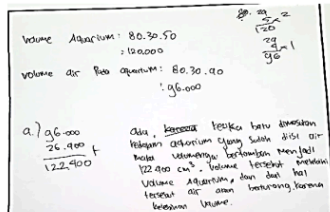 Volume Aquarium : 80.30.50
: 120.000
Volume air Pada aquarium : 80.30.40
: 96.000
a.) 96.000
26.400 +
122.400
ada, karena ketika batu dimasukan
kedalam aquarium yang sudah diisi air
maka volumenya bertambah menjadi
122.400 cm³. Volume tersebut melebihi
volume Aquarium, dan dari hal
tersebut air akan berkurang karena
kelebihan Volume.